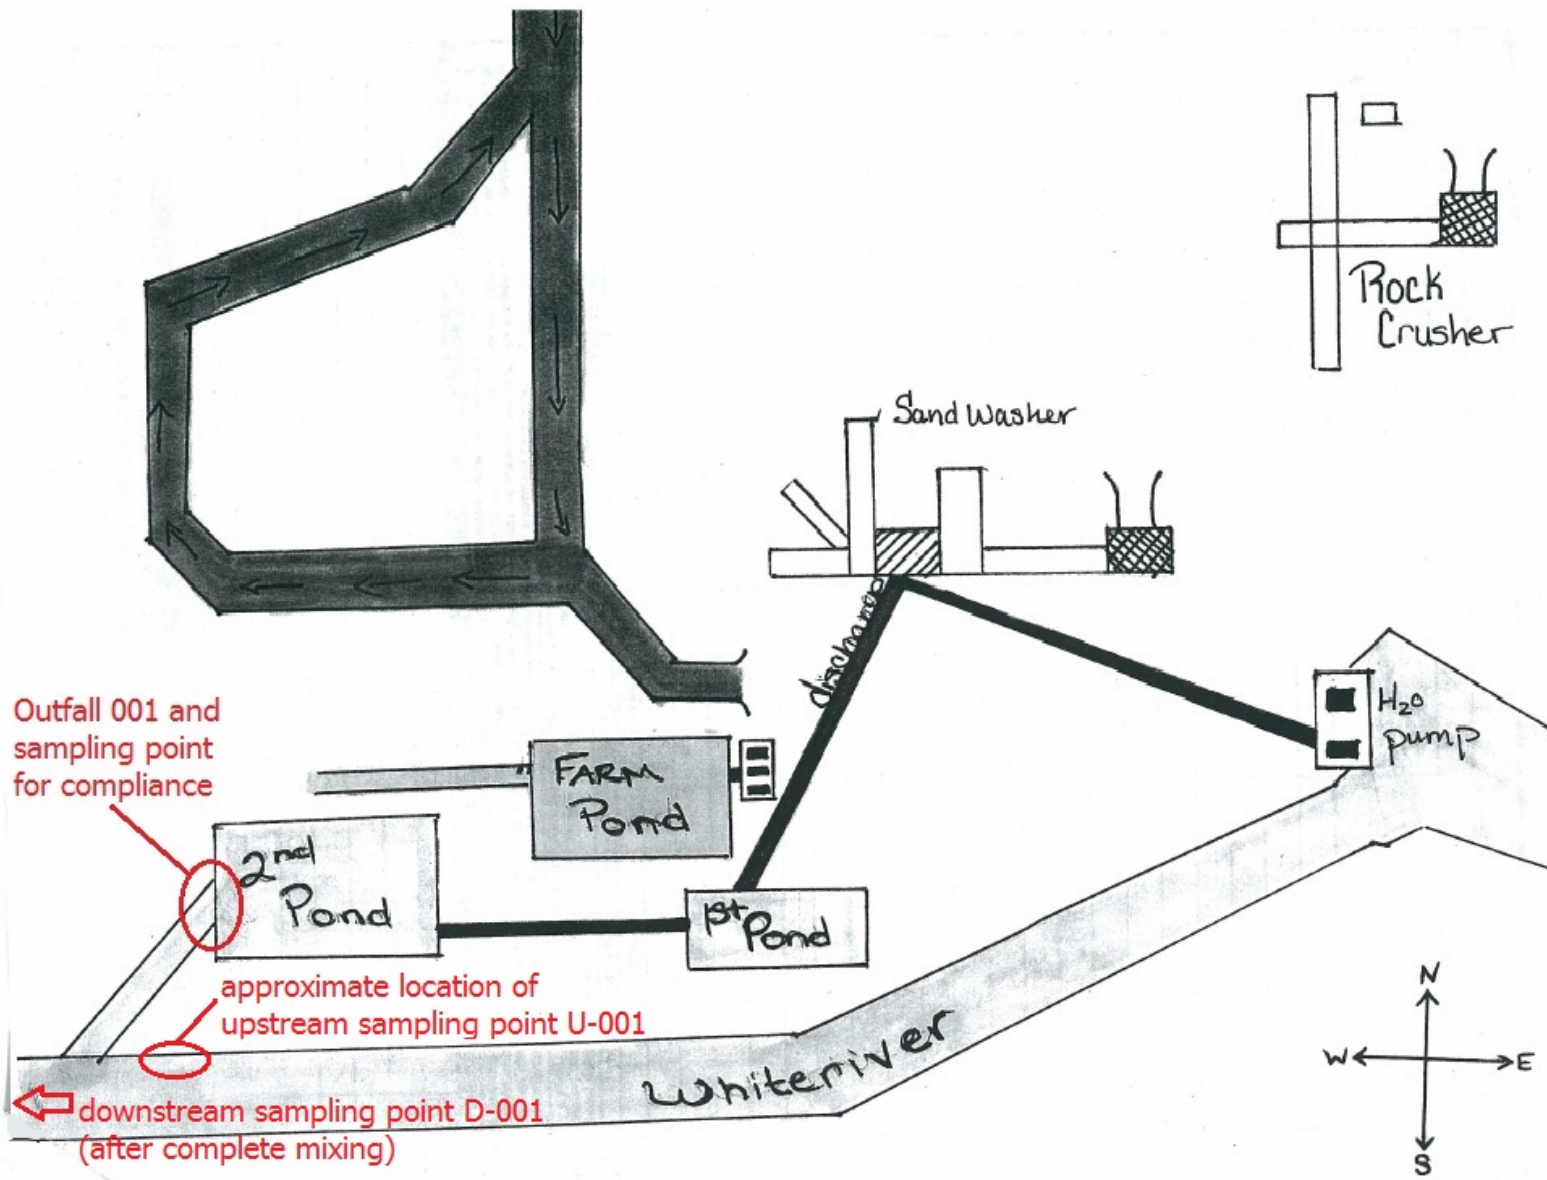 Rock
Crusher
Sand Washer
discharge
H2O
pump
Outfall 001 and
sampling point
for compliance
FARM
Pond
2nd
Pond
1st Pond
approximate location of
upstream sampling point U-001
Whiteriver
downstream sampling point D-001
(after complete mixing)
N
W
E
S